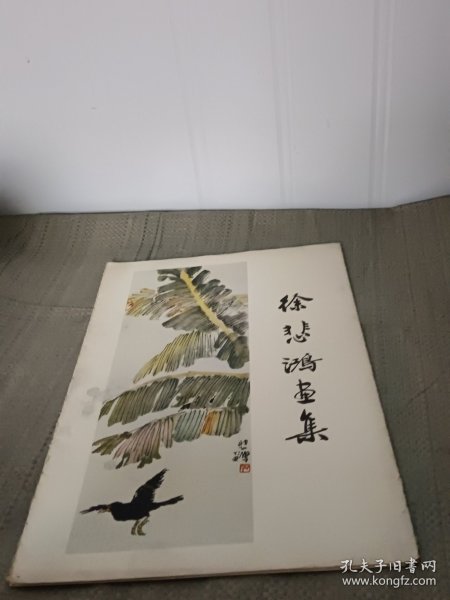 徐悲鸿画集
悲鸿
孔夫子旧书网
www.kongfz.com